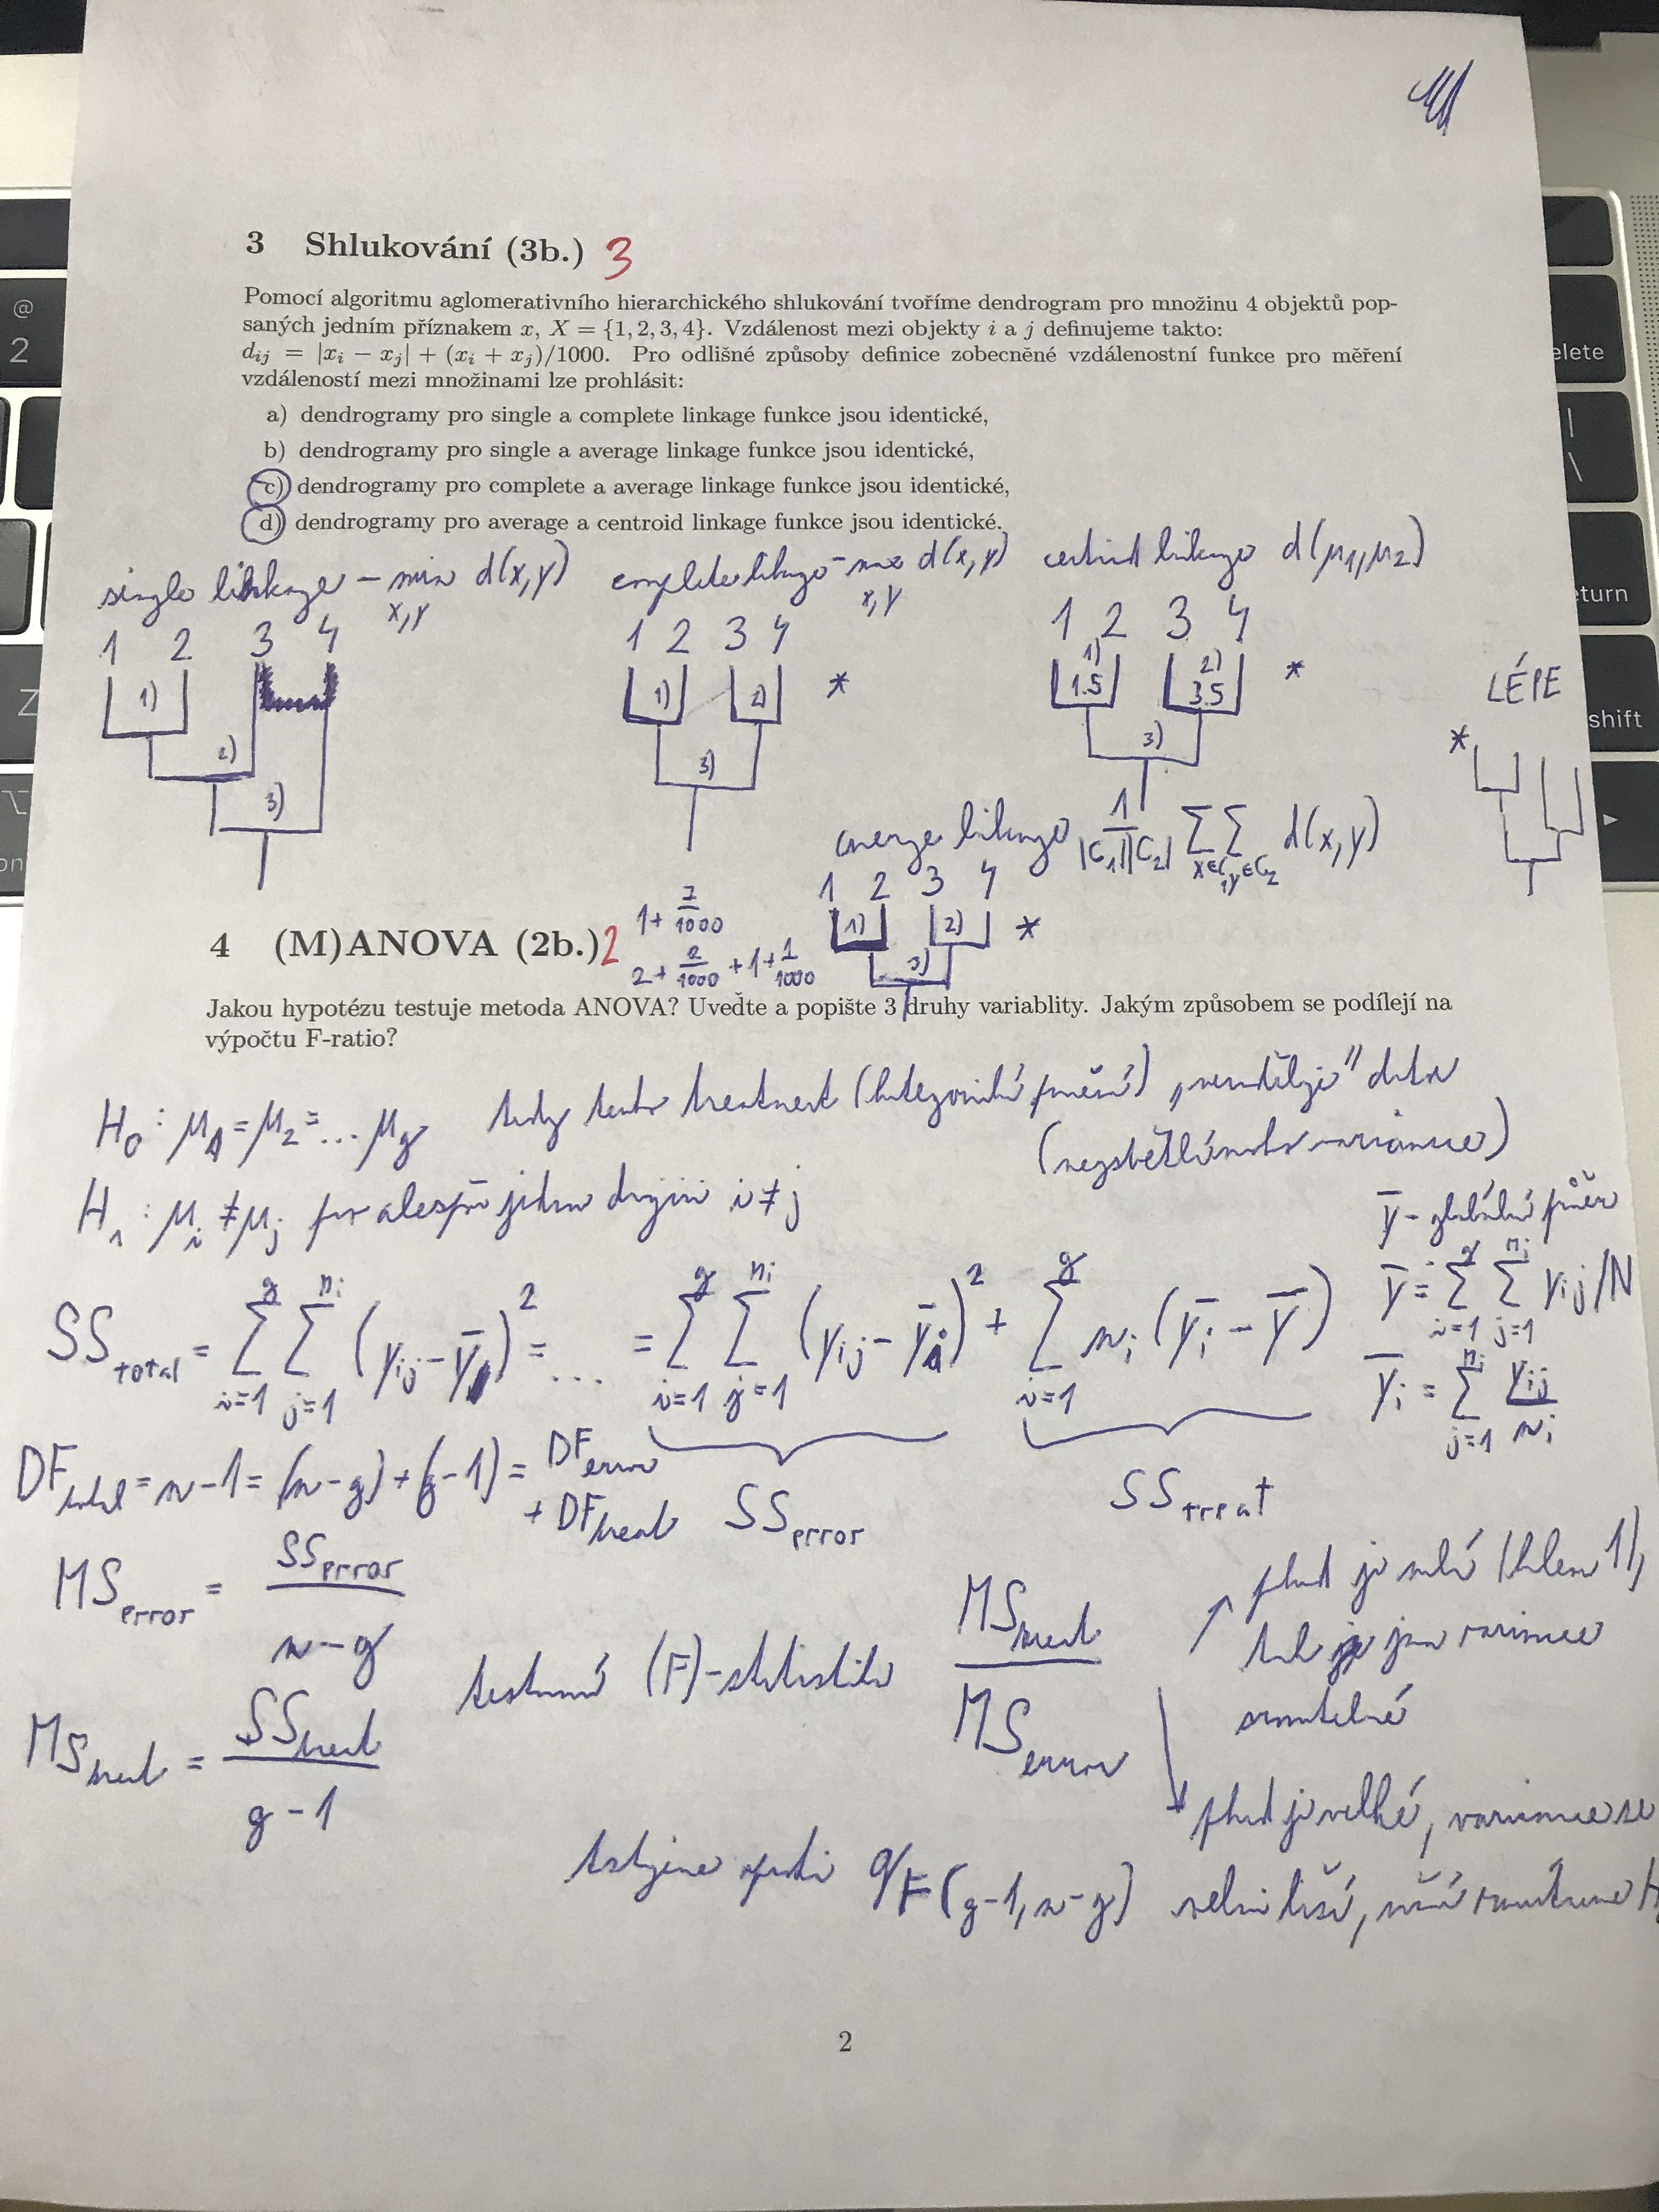 3 Shlukování (3b.) 3
Pomocí algoritmu aglomerativního hierarchického shlukování tvoříme dendrogram pro množinu 4 objektů pop-
saných jedním příznakem x, X = {1, 2, 3, 4}. Vzdálenost mezi objekty i a j definujeme takto:
d_ij = |x_i − x_j| + (x_i + x_j)/1000. Pro odlišné způsoby definice zobecněné vzdálenostní funkce pro měření
vzdáleností mezi množinami lze prohlásit:
a) dendrogramy pro single a complete linkage funkce jsou identické,
b) dendrogramy pro single a average linkage funkce jsou identické,
c) dendrogramy pro complete a average linkage funkce jsou identické,
d) dendrogramy pro average a centroid linkage funkce jsou identické.
single linkage – min d(x,y) x,y
1 2 3 4
1)
2)
3)
complete linkage – max d(x,y) x,y
1 2 3 4
1) 2) *
3)
centroid linkage d(μ_1, μ_2)
1 2 3 4
1) 2) *
1.5 3.5
3)
LÉPE
*
average linkage 1/|C_1||C_2| ∑∑ x∈C_1 y∈C_2 d(x,y)
1 2 3 4
1) 2) *
3)
1 + 7/1000
2 + 2/1000 + 1 + 1/1000
4 (M)ANOVA (2b.) 2
Jakou hypotézu testuje metoda ANOVA? Uveďte a popište 3 druhy variablity. Jakým způsobem se podílejí na
výpočtu F-ratio?
H_0: μ_1 = μ_2 = ... μ_g tedy tento treatment (kategorické jmění) „nerozděluje" data
(nevysvětluje variance)
H_1: μ_i ≠ μ_j pro alespoň jednu dvojici i ≠ j
ȳ – globální průměr
ȳ = ∑_{i=1}^{g} ∑_{j=1}^{n_i} y_ij / N
SS_total = ∑_{i=1}^{g} ∑_{j=1}^{n_i} (y_ij − ȳ)^2 = ... = ∑_{i=1}^{g} ∑_{j=1}^{n_i} (y_ij − ȳ_i)^2 + ∑_{i=1}^{g} n_i (ȳ_i − ȳ)
ȳ_i = ∑_{j=1}^{n_i} y_ij / n_i
DF_total = n − 1 = (n − g) + (g − 1) = DF_error
+ DF_treat SS_error SS_treat
MS_error = SS_error / n − g
MS_treat = SS_treat / g − 1
testovací (F)-statistika MS_treat / MS_error
pokud je malé (kolem 1),
tak je jen variance
srovnatelné
pokud je velké, variance se
velmi liší,
testujeme oproti q_F(g−1, n−g)
2